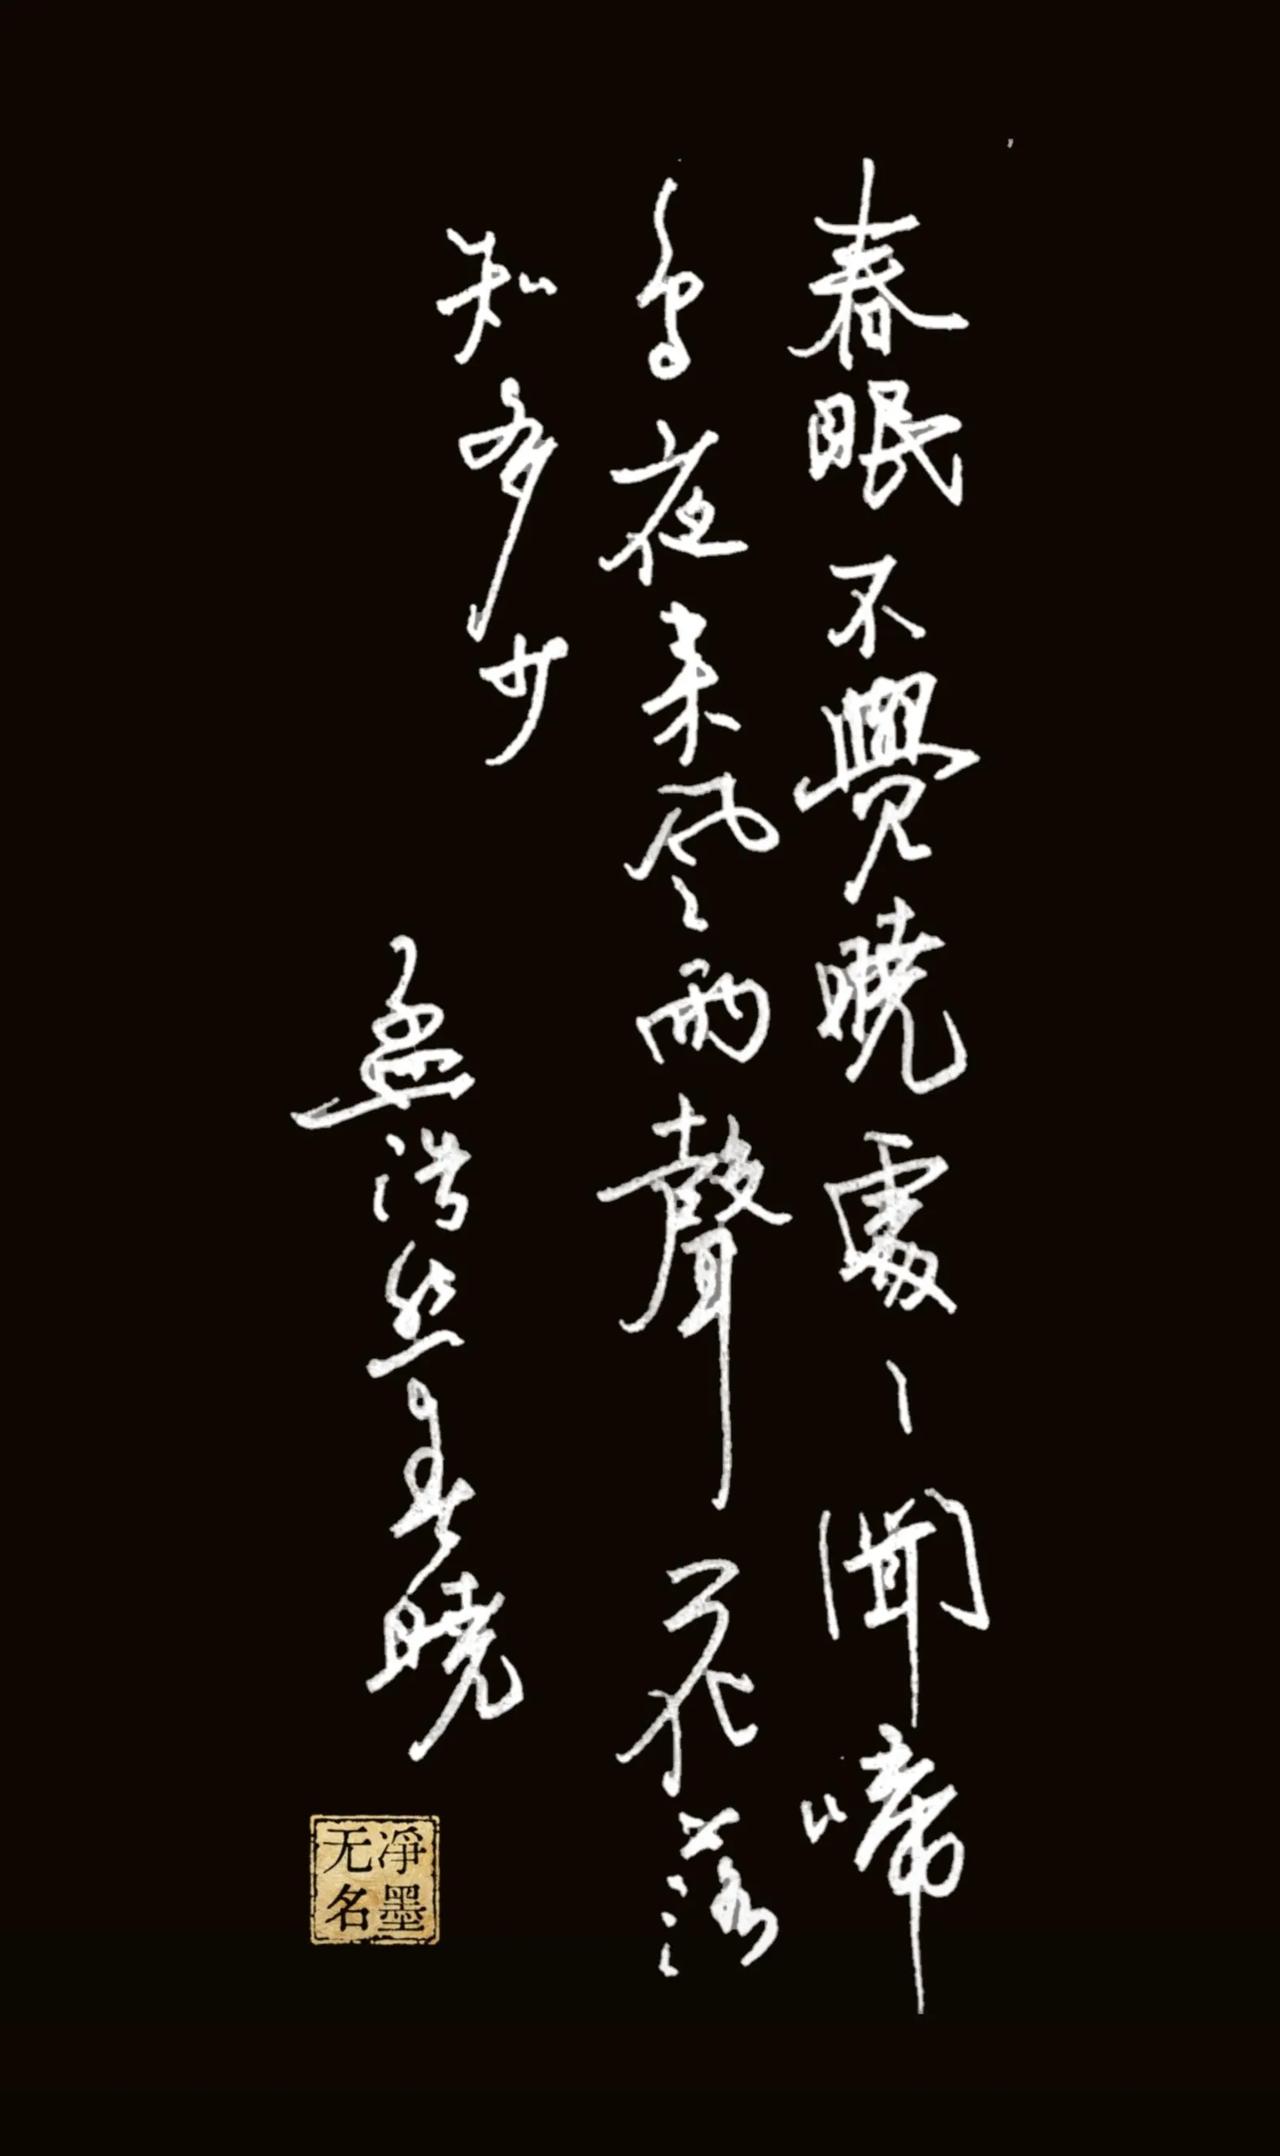 春眠不覺曉處〻聞啼
鳥夜来风雨聲花落
知多少
孟浩然春曉
净墨
无名